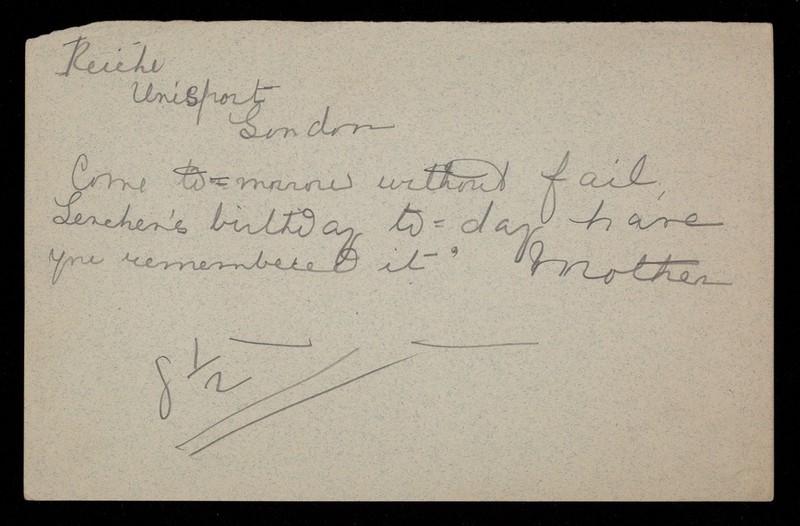 Reiche
Unisport
London
Come to=morrow without fail,
Lenchen's birthday to=day have
you remembered it? Mother
8 1/2